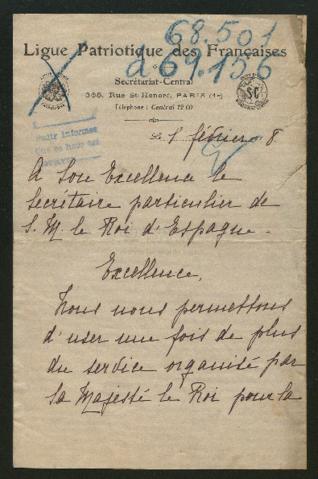 68.501
a 69.156
Ligue Patriotique des Françaises
Secrétariat-Central
368, Rue St-Honoré, PARIS (1er)
Téléphone : Central
SC
Pedir informes
1 février 8
A Son Excellence le
Secrétaire particulier de
S. M. le Roi d'Espagne.
Excellence,
Nous nous permettons
d'user une fois de plus
du service organisé par
Sa Majesté le Roi pour la